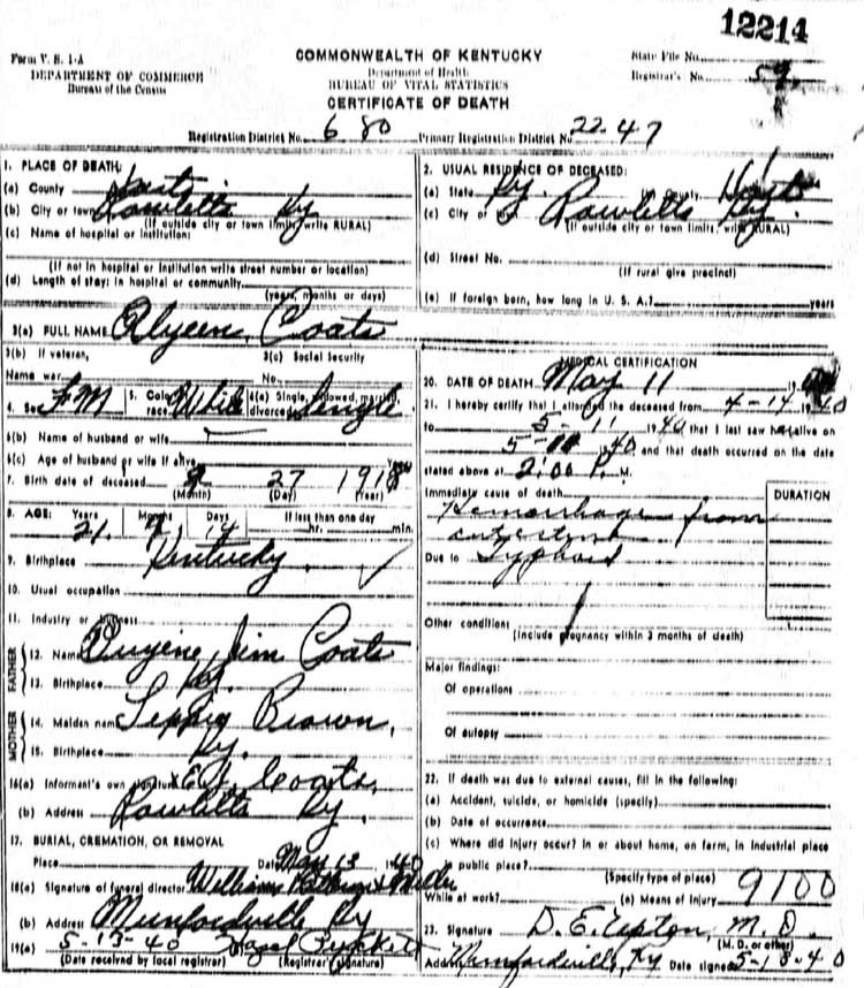 12214
Form V. S. 1-A
DEPARTMENT OF COMMERCE
Bureau of the Census
COMMONWEALTH OF KENTUCKY
Department of Health
BUREAU OF VITAL STATISTICS
CERTIFICATE OF DEATH
State File No.
Registrar's No. 59
Registration District No. 680 Primary Registration District No. 22-47
1. PLACE OF DEATH:
(a) County Hart
(b) City or town Rowletts Ky
(If outside city or town limits, write RURAL)
(c) Name of hospital or institution:
(If not in hospital or institution write street number or location)
(d) Length of stay: in hospital or community
(years, months or days)
2. USUAL RESIDENCE OF DECEASED:
(a) State Ky. (b) County Hart
(c) City or town Rowletts Ky.
(If outside city or town limits, write RURAL)
(d) Street No.
(If rural give precinct)
(e) If foreign born, how long in U. S. A.? years
3(a) FULL NAME Alyeen Coats
3(b) If veteran, 3(c) Social Security
Name war No.
4. Sex FM 5. Color or race White 6(a) Single, widowed, married, divorced Single
6(b) Name of husband or wife
6(c) Age of husband or wife if alive years
7. Birth date of deceased 27 1918
(Month) (Day) (Year)
8. AGE: Years Months Days If less than one day
21 14 hr. min.
9. Birthplace Kentucky
10. Usual occupation
11. Industry or business
FATHER
12. Name Eugene Jim Coats
13. Birthplace Ky.
MOTHER
14. Maiden name Brown
15. Birthplace Ky.
16(a) Informant's own signature X E. J. Coats
(b) Address Rowletts Ky.
17. BURIAL, CREMATION, OR REMOVAL
Place Date May 13 1940
18(a) Signature of funeral director Williams & Miller
(b) Address Munfordville Ky
19(a) 5-13-40 Hazel
(Date received by local registrar) (Registrar's signature)
MEDICAL CERTIFICATION
20. DATE OF DEATH May 11 19
21. I hereby certify that I attended the deceased from 4-14 1940
to 5-11 1940 that I last saw h alive on
5-11 40 and that death occurred on the date
stated above at 2:00 P. M.
Immediate cause of death DURATION
Hemorrhage from
intestine
Due to Typhoid
Other conditions
(Include pregnancy within 3 months of death)
Major findings:
Of operations
Of autopsy
22. If death was due to external causes, fill in the following:
(a) Accident, suicide, or homicide (specify)
(b) Date of occurrence
(c) Where did injury occur? In or about home, on farm, in industrial place
in public place?
(Specify type of place)
While at work? (e) Means of injury 9100
23. Signature D. E. Upton, M. D.
(M. D. or other)
Address Munfordville, Ky Date signed 5-13-40